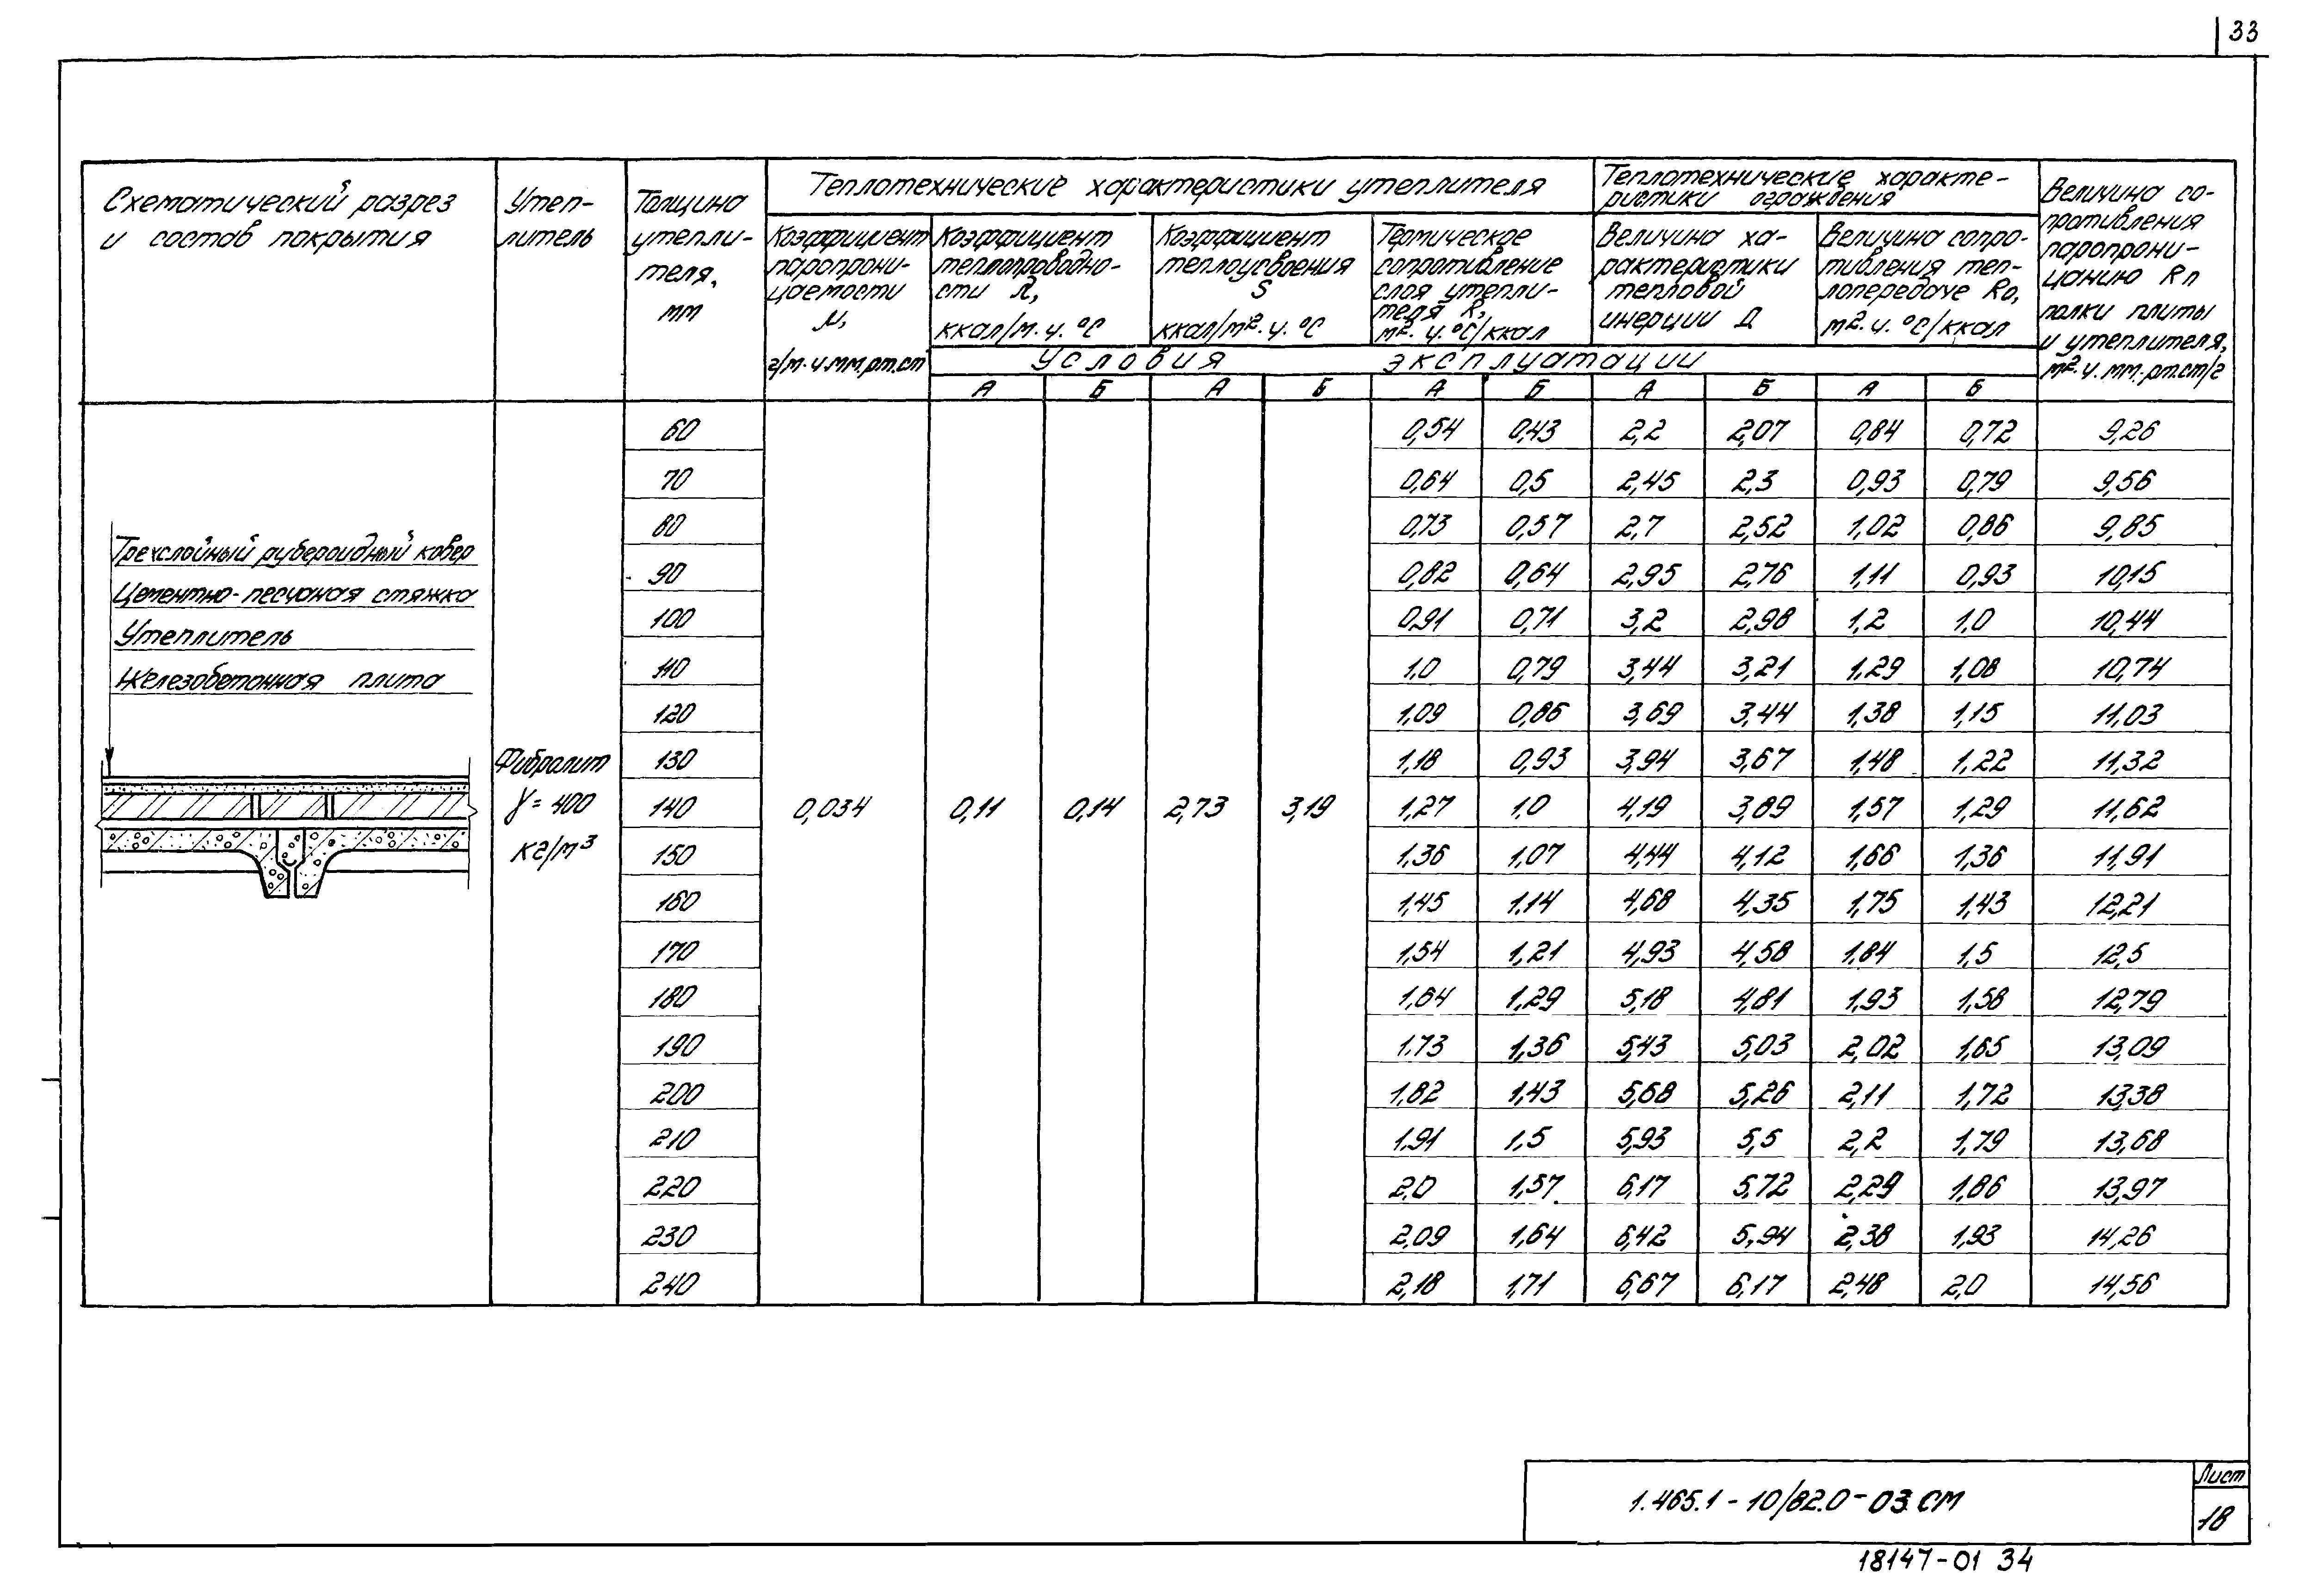 33
Схематический разрез
и состав покрытия
Утеп-
литель
Толщина
утепли-
теля,
мм
Теплотехнические характеристики утеплителя
Теплотехнические характе-
ристики ограждения
Величина со-
противления
паропрони-
цанию Rп
полки плиты
и утеплителя,
м².ч.мм.рт.ст/г
Коэффициент
паропрони-
цаемости
μ,
г/м.ч.мм.рт.ст
Коэффициент
теплопроводно-
сти λ,
ккал/м.ч.°С
Коэффициент
теплоусвоения
S
ккал/м².ч.°С
Термическое
сопротивление
слоя утепли-
теля R,
м².ч.°С/ккал
Величина ха-
рактеристики
тепловой
инерции Д
Величина сопро-
тивления теп-
лопередаче Rо,
м².ч.°С/ккал
Условия эксплуатации
А Б А Б А Б А Б А Б
60 0,54 0,43 2,2 2,07 0,84 0,72 9,26
70 0,64 0,5 2,45 2,3 0,93 0,79 9,56
80 0,73 0,57 2,7 2,52 1,02 0,86 9,85
90 0,82 0,64 2,95 2,76 1,11 0,93 10,15
100 0,91 0,71 3,2 2,98 1,2 1,0 10,44
110 1,0 0,79 3,44 3,21 1,29 1,08 10,74
120 1,09 0,86 3,69 3,44 1,38 1,15 11,03
130 1,18 0,93 3,94 3,67 1,48 1,22 11,32
140 0,034 0,11 0,14 2,73 3,19 1,27 1,0 4,19 3,89 1,57 1,29 11,62
150 1,36 1,07 4,44 4,12 1,66 1,36 11,91
160 1,45 1,14 4,68 4,35 1,75 1,43 12,21
170 1,54 1,21 4,93 4,58 1,84 1,5 12,5
180 1,64 1,29 5,18 4,81 1,93 1,58 12,79
190 1,73 1,36 5,43 5,03 2,02 1,65 13,09
200 1,82 1,43 5,68 5,26 2,11 1,72 13,38
210 1,91 1,5 5,93 5,5 2,2 1,79 13,68
220 2,0 1,57 6,17 5,72 2,29 1,86 13,97
230 2,09 1,64 6,42 5,94 2,38 1,93 14,26
240 2,18 1,71 6,67 6,17 2,48 2,0 14,56
Трехслойный рубероидный ковер
Цементно-песчаная стяжка
Утеплитель
Железобетонная плита
Фибролит
γ = 400
кг/м³
1.465.1-10/82.0-03 СМ
Лист
18
18147-01 34